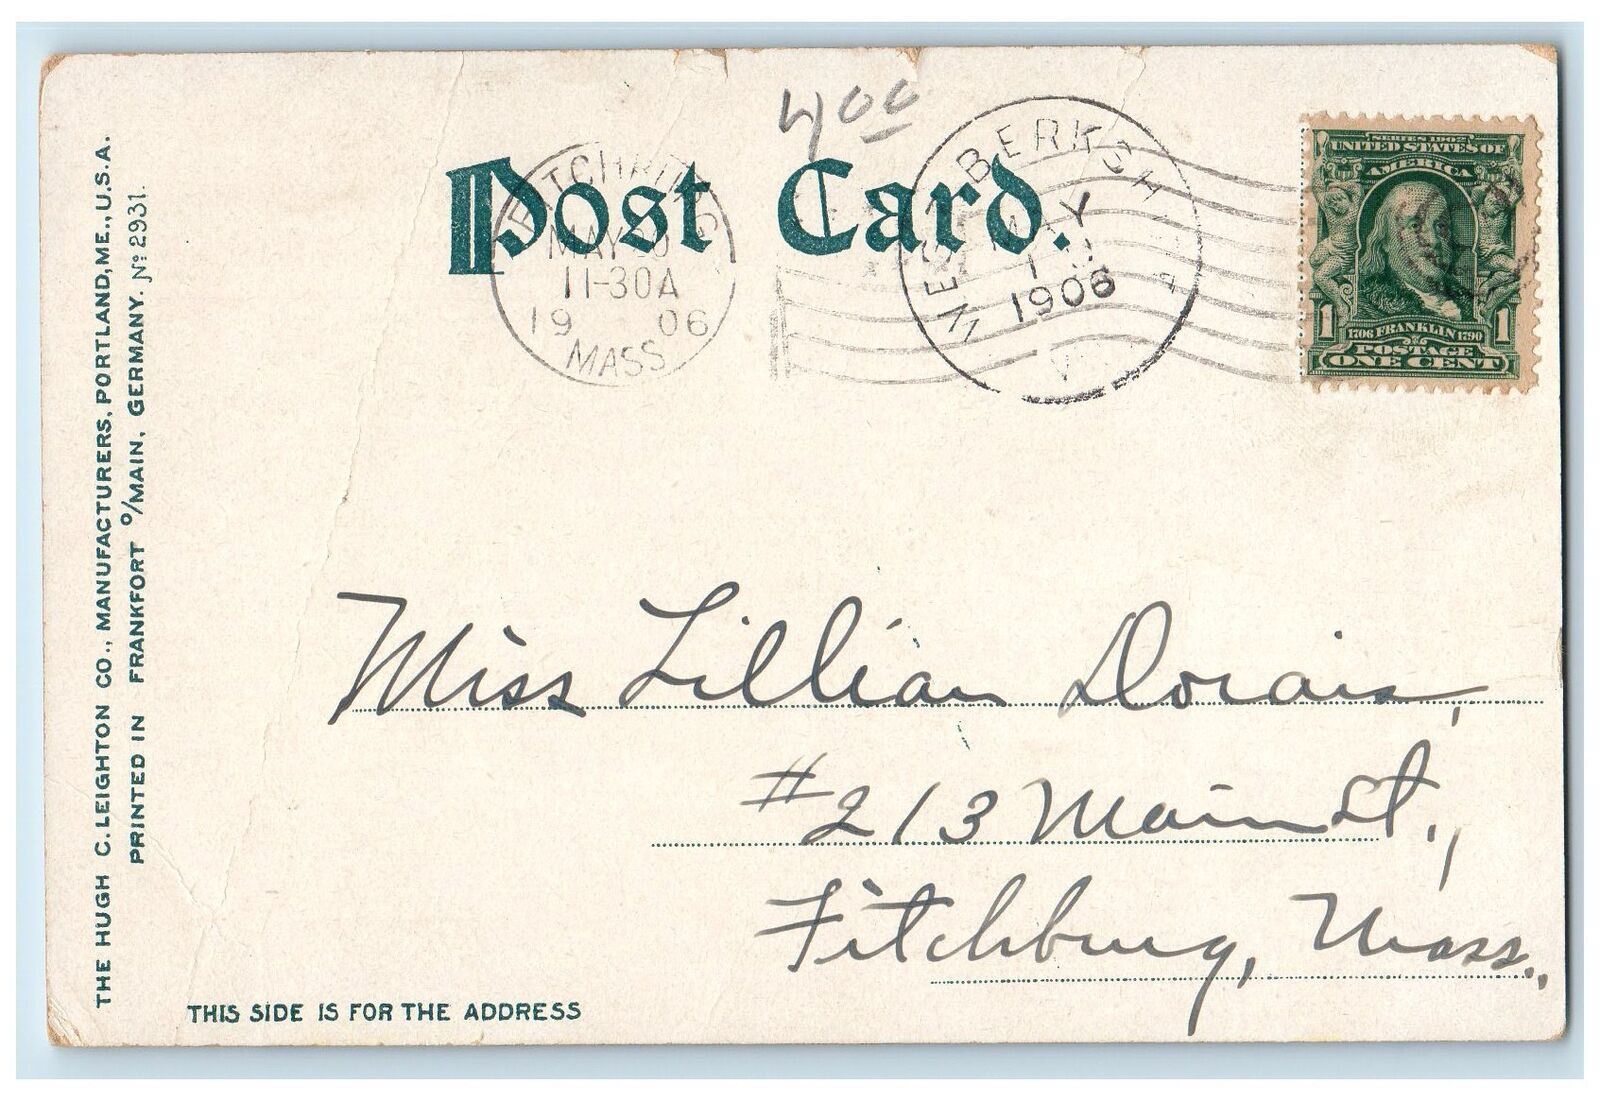 400
Post Card.
FITCHBURG
MAY
11-30A
19 06
MASS.
WEST BERKSHIRE
MAY
1906
SERIES 1902
UNITED STATES OF
AMERICA
1 1
1706 FRANKLIN 1790
POSTAGE
ONE CENT
THE HUGH C. LEIGHTON CO., MANUFACTURERS, PORTLAND, ME., U.S.A.
PRINTED IN FRANKFORT o/MAIN, GERMANY. No 2931.
Miss Lillian Dorais,
#213 Main St.,
Fitchburg, Mass.,
THIS SIDE IS FOR THE ADDRESS